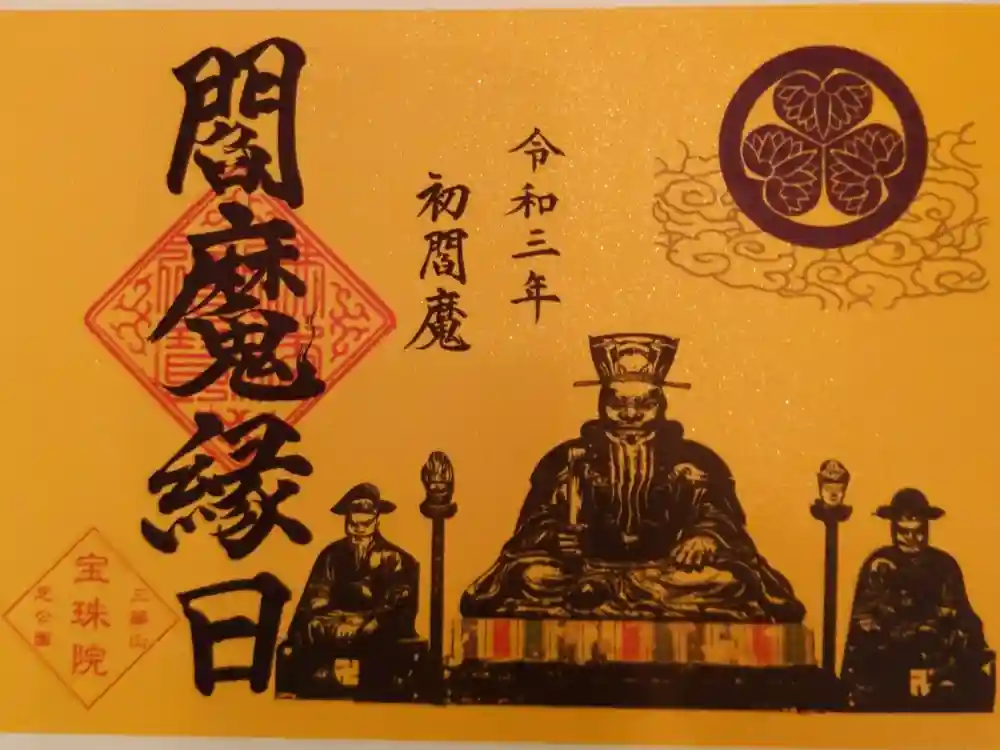 令和三年
初閻魔
閻魔縁日
三縁山
宝珠院
芝公園